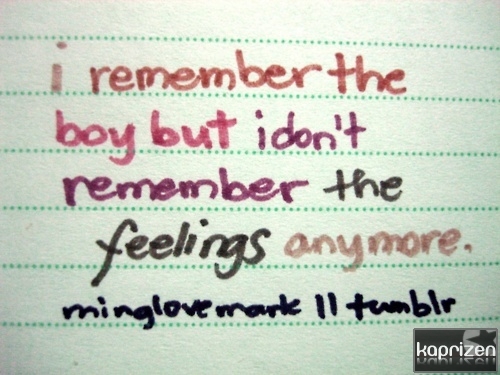 i remember the
boy but i don't
remember the
feelings anymore.
minglovemark || tumblr
kaprizen